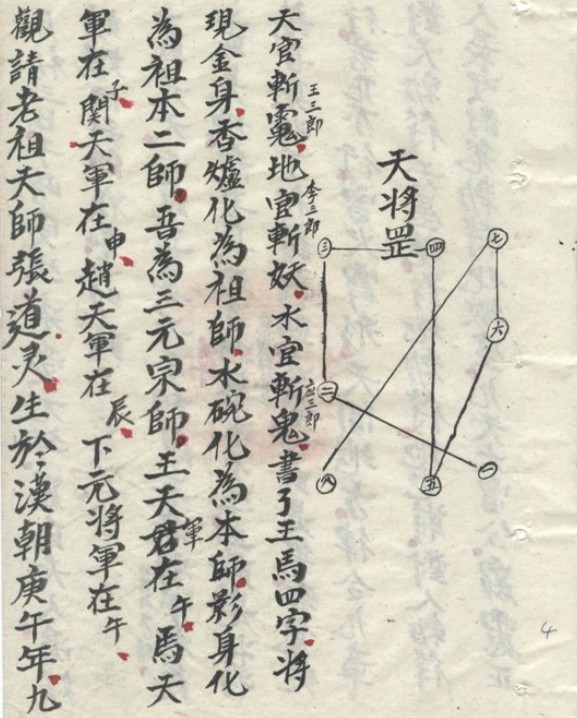 天将罡
七
四
三
六
二
一
五
八
王三郎
李三郎
应三郎
天官斬地官斬妖水官斬鬼書了王馬四字将
現金身香爐化為祖師水碗化為本師影身化
為祖本二師吾為三元宗師王天君軍在午馬天
軍在子関天軍在申趙天軍在辰下元将軍在午
觀請老祖天師張道灵生於漢朝庚午年九
4